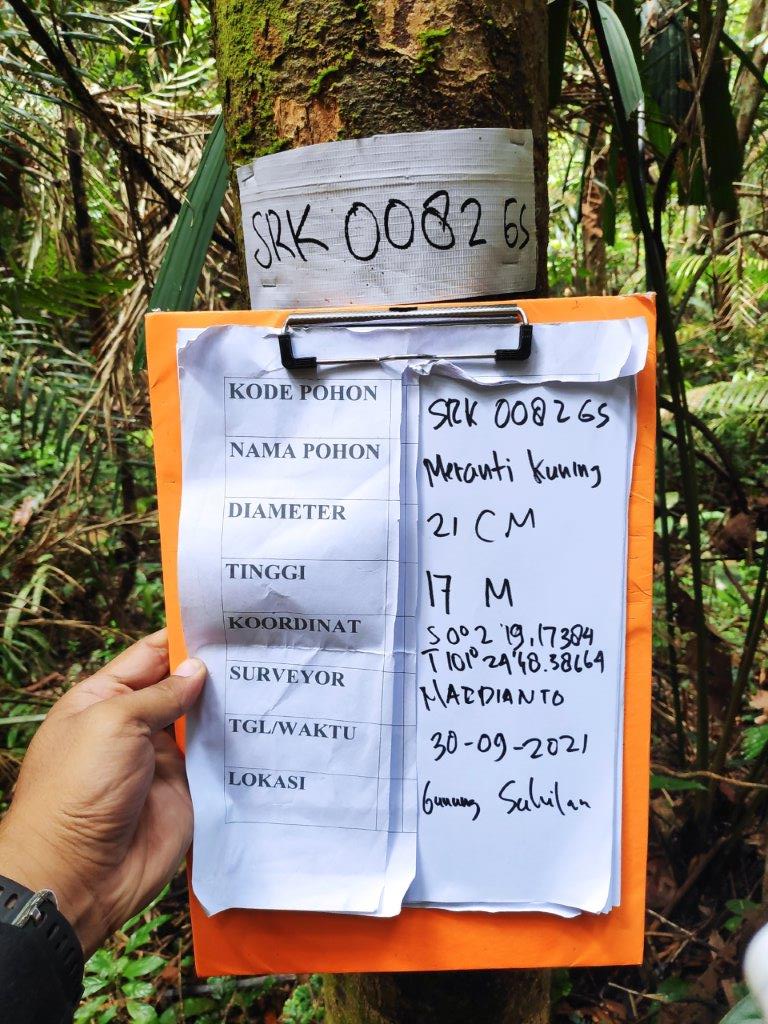 SRK 0082 GS
KODE POHON SRK 0082 GS
NAMA POHON Meranti Kuning
DIAMETER 21 CM
TINGGI 17 M
KOORDINAT S 00° 2 '19,17384
T 101° 29'48.38664
SURVEYOR MARDIANTO
TGL/WAKTU 30-09-2021
LOKASI Gunung Sahilan